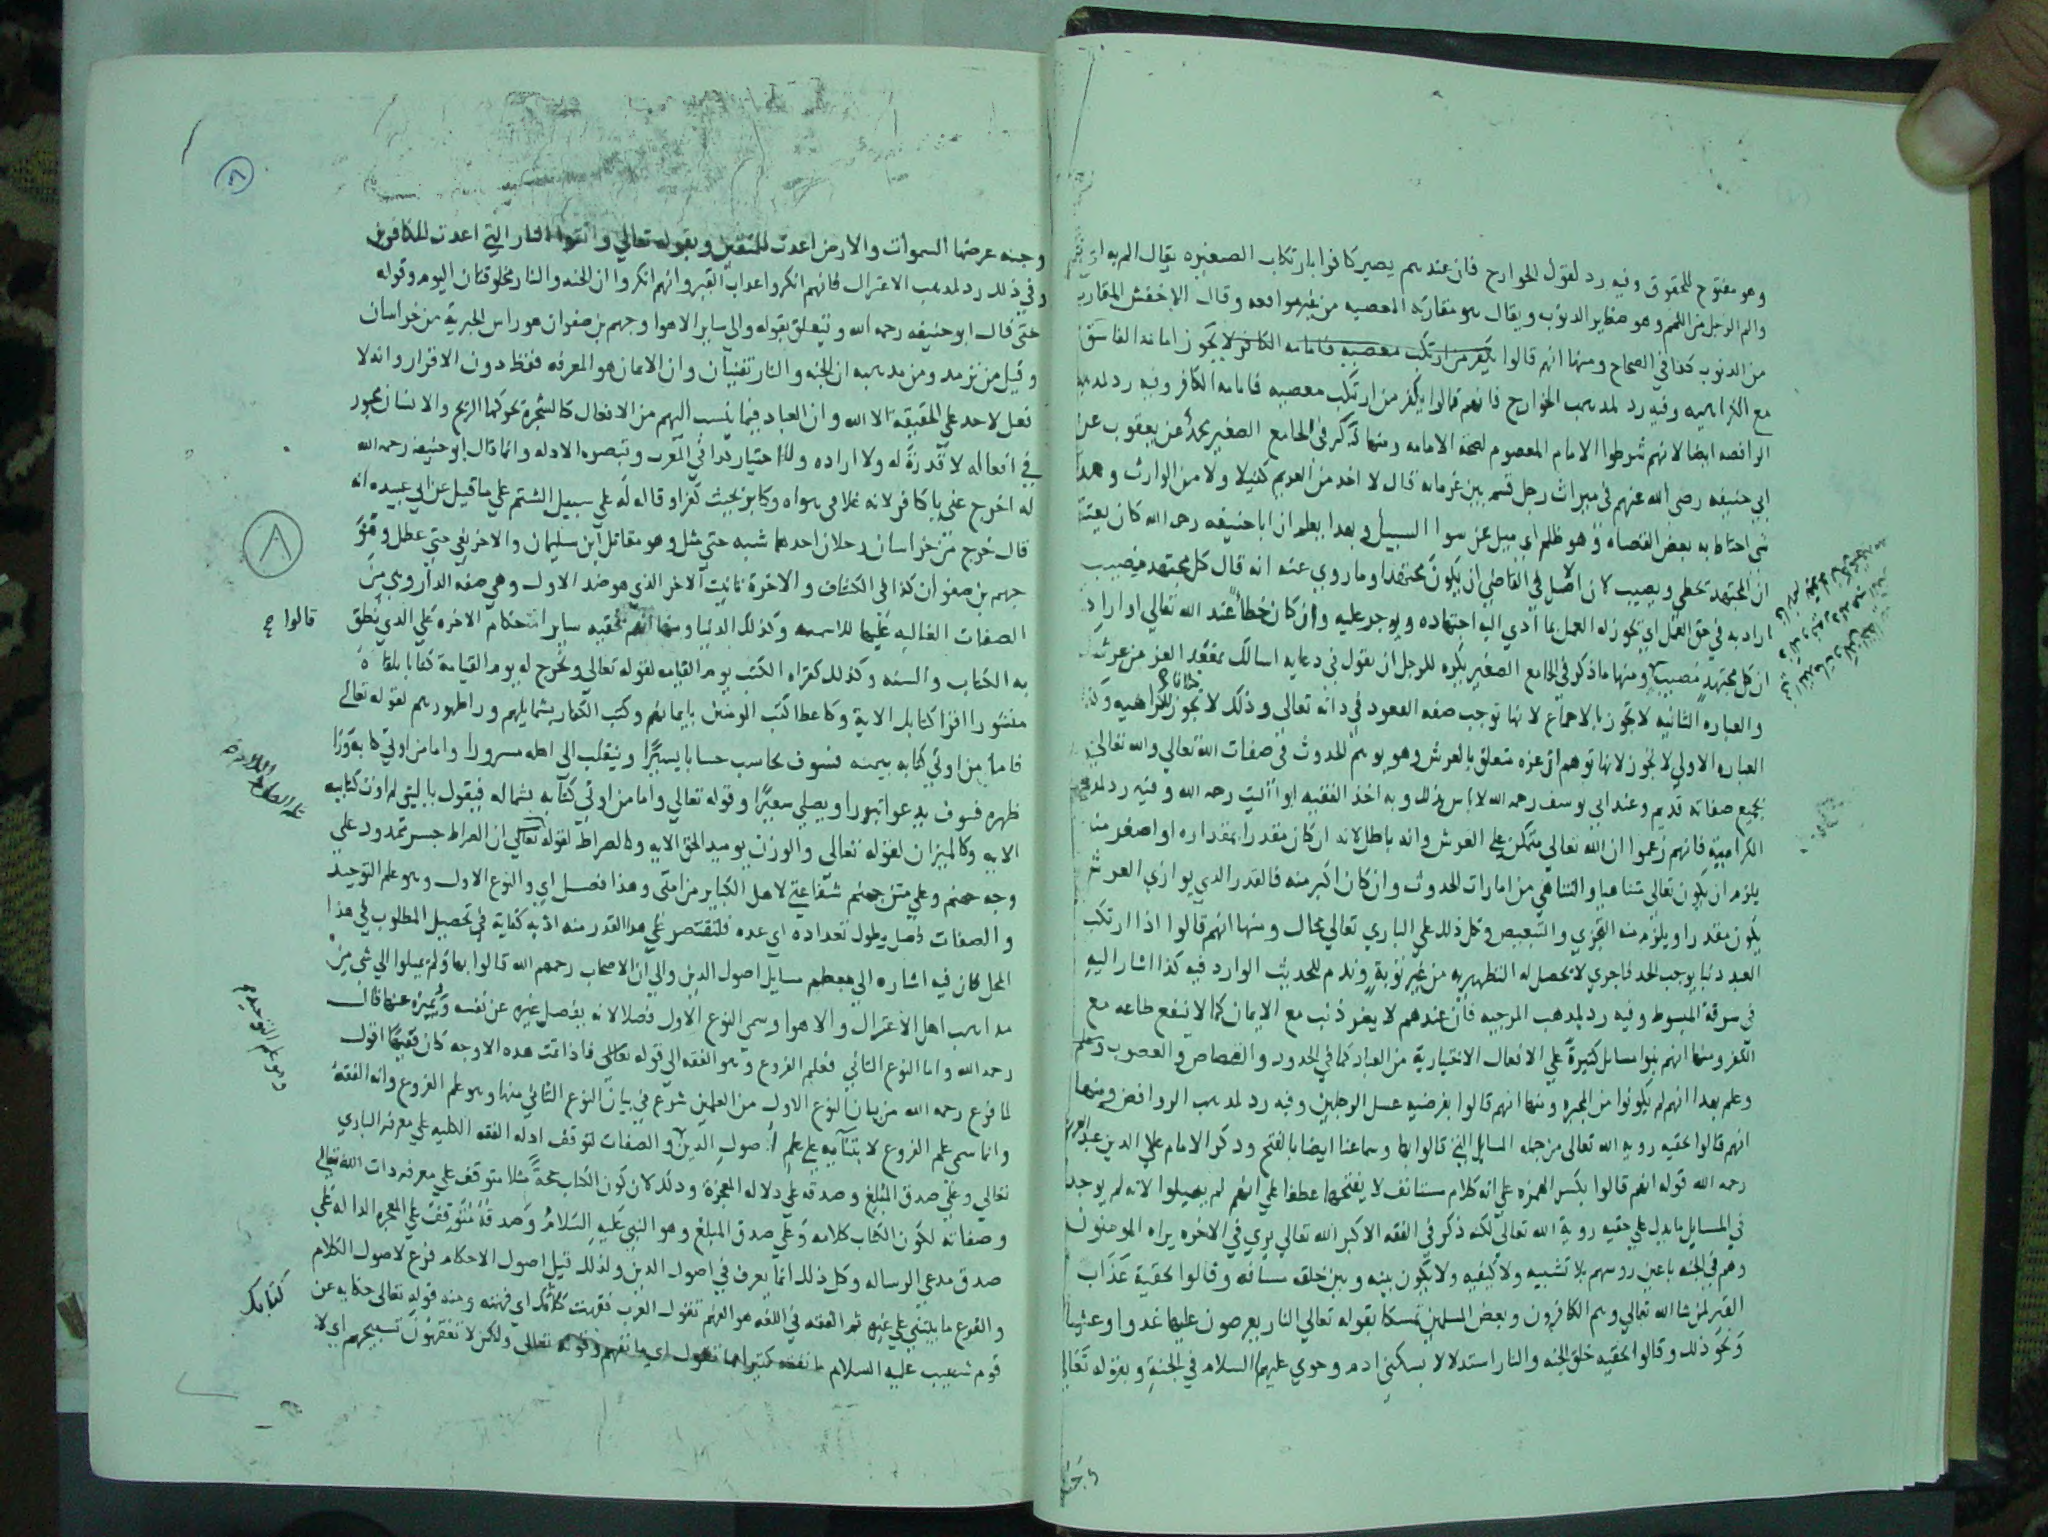 وهو مفتوح للحقوق وفيه رد لقول الخوارج فان عندهم يصير كافرا بارتكاب الصغيره يقال الم به اي
والم الرجل من اللمم وهو صغاير الذنوب ويقال هو مقاربة المعصيه من غير مواقعه وقال الاخفش المقارب
من الذنوب كذا في الصحاح ومنها انهم قالوا يكفر من ارتكب معصيه فامامه الكافر لا يجوز امامة الفاسق
مع الكراهيه وفيه رد لمذهب الخوارج فانهم قالوا يكفر من ارتكب معصيه فامامه الكافر وفيه رد لمذهب
الرافضه ايضا لانهم شرطوا الامام المعصوم لصحة الامامه ومنها ذكر في الجامع الصغير محمد عن يعقوب عن
ابي حنيفه رضي الله عنهم في ميراث رجل قسم بين غرمائه قال لا اخذ من الغريم كفيلا ولا من الوارث وهذا
شي احتاط به بعض القضاه وهو ظلم اي ميل عن سوا السبيل وبهذا يعلم ان ابا حنيفه رحمه الله كان يعتقد
ان المجتهد يخطي ويصيب لان الاصل في القاضي ان يكون مجتهدا وما روي عنه انه قال كل مجتهد مصيب
اراد به في حق العمل اي يجوز له العمل بما ادي اليه اجتهاده ويوجر عليه وان كان خطأ عند الله تعالي او اراد
ان كل مجتهد مصيب ومنها ما ذكر في الجامع الصغير يكره للرجل ان يقول في دعايه اسالك بمقعد العز من عرشك
والعباره الثانيه لا تجوز بالاجماع لانها توجب صفه القعود في ذاته تعالي وذلك لا يجوز للكراهيه
العباره الاولي لا تجوز لانها توهم ان عزه متعلق بالعرش وهو يوهم الحدوث في صفات الله تعالي والله تعالي
بجميع صفاته قديم وعند ابي يوسف رحمه الله لا باس بذلك وبه اخذ الفقيه ابو الليث رحمه الله وفيه رد لمذهب
الكراميه فانهم زعموا ان الله تعالي متمكن علي العرش وانه باطل لانه ان كان مقدرا بمقداره او اصغر منه
يلزم ان يكون تعالي متناهيا والتناهي من امارات الحدوث وان كان اكبر منه فالقدر الذي يوازي العرش
يكون مقدرا ويلزم منه التجزي والتبعيض وكل ذلك علي الباري تعالي محال ومنها انهم قالوا اذا ارتكب
العبد ذنبا يوجب الحد فاجري لا يحصل له التطهير به من غير توبة وندم للحديث الوارد فيه كذا اشار اليه
في سرقة المبسوط وفيه رد لمذهب المرجيه فان عندهم لا يضر ذنب مع الايمان كما لا ينفع طاعه مع
الكفر ومنها انهم بنوا مسائل كثيرة علي الافعال الاختيارية من العباد كما في الحدود والقصاص والغصوب
وعلم بهذا انهم لم يكونوا من المجبره ومنها انهم قالوا بفرضيه غسل الرجلين وفيه رد لمذهب الروافض ومنها
انهم قالوا بحقيه رويه الله تعالي من جمله المسايل التي قالوا بها وسماعنا ايضا بالفتح وذكر الامام علا الدين عبد العزيز
رحمه الله قوله انهم قالوا بكسر الهمزه علي انه كلام مستانف لا بفتحها عطفا علي انهم لم يميلوا لانه لم يوجد
في المسايل ما يدل علي حقيه روية الله تعالي لكنه ذكر في الفقه الاكبر الله تعالي يري في الاخره يراه المومنون
وهم في الجنه باعين روسهم بلا تشبيه ولا كيفيه ولا يكون بينه وبين خلقه مسافه وقالوا بحقية عذاب
القبر لمن شا الله تعالي وهم الكافرون وبعض المسلمين تمسكا بقوله تعالي النار يعرضون عليها غدوا وعشيا
ونحو ذلك وقالوا بحقيه خلق الجنه والنار استدلالا بسكني ادم وحوي عليهما السلام في الجنة وبقوله تعالي
وجنه
٨
وجنه عرضها السموات والارض اعدت للمتقين وبقوله تعالي واتقوا النار التي اعدت للكافرين
وفي ذلك رد لمذهب الاعتزال فانهم انكروا عذاب القبر وانهم انكروا ان الجنه والنار مخلوقتان اليوم وقوله
حتي قال ابو حنيفه رحمه الله ويتعلق بقوله والي ساير الاهوا وجهم بن صفوان هو راس الجبرية من خراسان
وقيل من ترمد ومن مذهبه ان الجنه والنار تفنيان وان الايمان هو المعرفه فقط دون الاقرار وانه لا
فعل لاحد علي الحقيقة الا الله وان العباد فيما ينسب اليهم من الافعال كالشجرة تحركها الريح والانسان مجبور
في افعاله لا قدرة له ولا اراده ولا اختيار كذا في المغرب وتبصره الادله وانما قال ابو حنيفه رحمه الله
له اخرج عني يا كافر لانه غلا في هواه وكابر بحيث كفر او قاله له علي سبيل الشتم علي ما قيل عن ابي عبيده انه
قال خرج من خراسان رجلان احدهما شبه حتي مثل وهو مقاتل ابن سليمان والاخر نفي حتي عطل وهو
جهم بن صفوان كذا في الكشاف والاخرة تانيث الاخر الذي هو ضد الاول وهي صفه الدار وهي من
الصفات الغالبه عليها للاسميه وكذلك الدنيا ومنها انهم بحقيه ساير احكام الاخره علي الذي نطق
قالوا صح
به الكتاب والسنه وكذلك كقراه الكتب يوم القيامه لقوله تعالي ونخرج له يوم القيامة كتابا يلقاه
منشورا اقرا كتابك الاية وكاعطا كتب المومنين بايمانهم وكتب الكفار بشمايلهم وراظهورهم لقوله تعالي
فاما من اوتي كتابه بيمينه فسوف يحاسب حسابا يسيرا وينقلب الي اهله مسرورا واما من اوتي كتابه ورا
ظهره فسوف يدعوا ثبورا ويصلي سعيرا وقوله تعالي واما من اوتي كتابه بشماله فيقول يا ليتني لم اوت كتابيه
الايه وكالميزان لقوله تعالي والوزن يوميد الحق الايه وكالصراط لقوله تعالي ان الصراط جسر ممدود علي
وجه جهنم وعلي متن جهنم شفاعتي لاهل الكباير من امتي وهذا فصل اي والنوع الاول وهو علم التوحيد
والصفات فصل يطول تعداده اي عده فلنقتصر علي هذا القدر منه اذ به كفاية في تحصيل المطلوب في هذا
المحل كان فيه اشاره الي معظم مسايل اصول الدين والي ان الاصحاب رحمهم الله قالوا بها ولم يميلوا الي شي من
مذاهب اهل الاعتزال والاهوا وسمي النوع الاول فصلا لانه يفصل غيره عن نفسه ويميزه عنها قال
وهو علم التوحيد صح
رحمه الله واما النوع الثاني فعلم الفروع وهو الفقه الي قوله تعالي فاذا تمت هذه الاوجه كان فقيها اقول
لما فرغ رحمه الله من بيان النوع الاول من العلمين شرع في بيان النوع الثاني منها وهو علم الفروع وانه الفقه
وانما سمي علم الفروع لابتنايه علي علم اصول الدين والصفات لتوقف ادله الفقه الكليه علي معرفه الباري
تعالي وعلي صدق المبلغ وصدقه علي دلاله المعجزة وذلك لان كون الكتاب حجة مثلا متوقف علي معرفه ذات الله تعالي
وصفاته لكون الكتاب كلامه وعلي صدق المبلغ وهو النبي عليه السلام وصدقه متوقف علي المعجزه الدالة علي
صدق مدعي الرساله وكل ذلك انما يعرف في اصول الدين ولذلك قيل اصول الاحكام فرع لاصول الكلام
والفرع ما يبتني علي غيره ثم الفقه في اللغه هو الفهم تقول العرب فقهت كلامك اي فهمته ومنه قوله تعالي حكايه عن
قوم شعيب عليه السلام ما نفقه كثيرا مما تقول اي ما نفهم وقوله تعالي ولكن لا تفقهون تسبيحهم اي لا
كتابك
٨